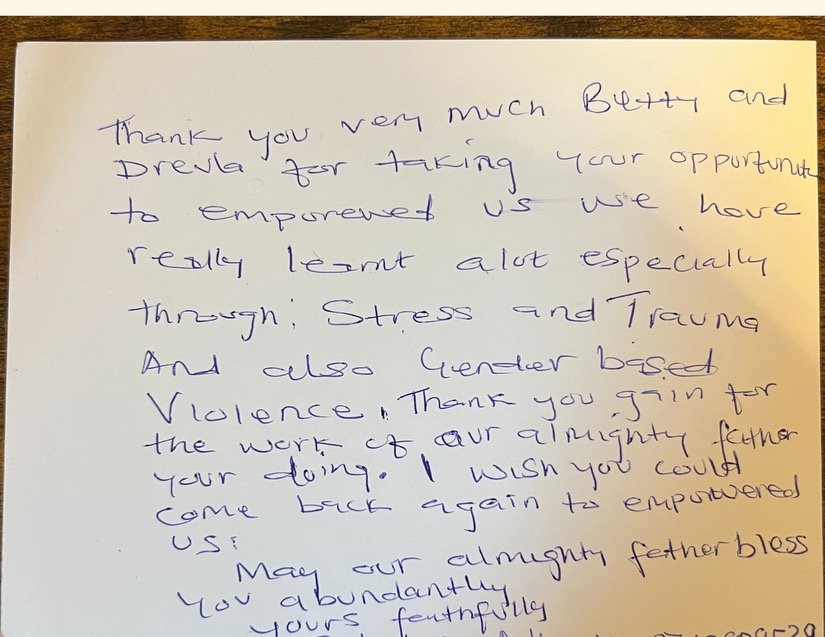 Thank you very much Betty and
Drevla for taking your opportunit
to empurewed us we have
really learnt alot especially
through: Stress and Trauma
And also Gender based
Violence, Thank you gain for
the work of our almighty father
your doing. I wish you could
come back again to empowered
us:
May our almighty father bless
you abundantly
yours faithfully